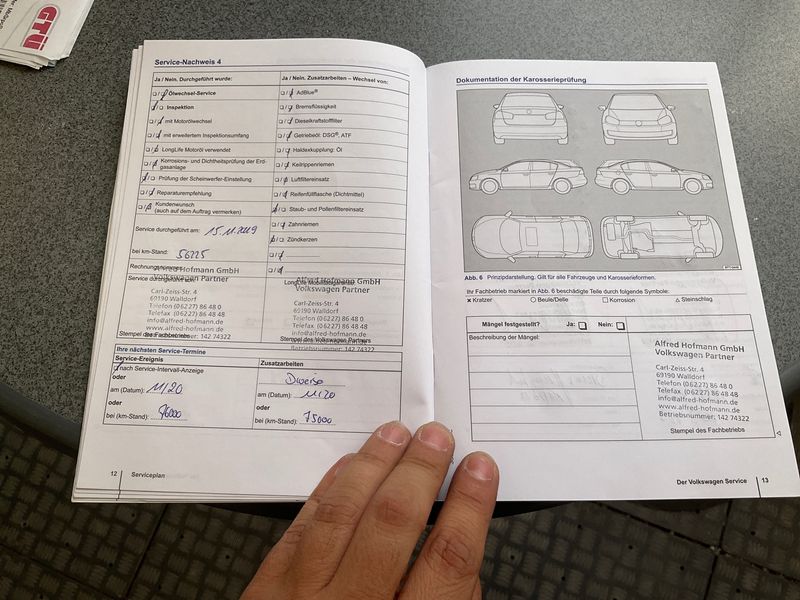 GTÜ
Service-Nachweis 4
Ja / Nein. Durchgeführt wurde:
Ölwechsel-Service
Inspektion
mit Motorölwechsel
mit erweitertem Inspektionsumfang
LongLife Motoröl verwendet
Korrosions- und Dichtheitsprüfung der Erd-
gasanlage
Prüfung der Scheinwerfer-Einstellung
Reparaturempfehlung
Kundenwunsch
(auch auf dem Auftrag vermerken)
Service durchgeführt am: 15.11.2019
bei km-Stand: 56225
Rechnungsnummer:
Service durchgeführt von:
Alfred Hofmann GmbH
Volkswagen Partner
Carl-Zeiss-Str. 4
69190 Walldorf
Telefon (06227) 86 48 0
Telefax (06227) 86 48 48
info@alfred-hofmann.de
www.alfred-hofmann.de
Betriebsnummer: 142 74322
Stempel des Fachbetriebs
Ja / Nein. Zusatzarbeiten – Wechsel von:
AdBlue®
Bremsflüssigkeit
Dieselkraftstofffilter
Getriebeöl: DSG®, ATF
Haldexkupplung: Öl
Keilrippenriemen
Luftfiltereinsatz
Reifenfüllflasche (Dichtmittel)
Staub- und Pollenfiltereinsatz
Zahnriemen
Zündkerzen
LongLife Mobilitätsgarantie
Alfred Hofmann GmbH
Volkswagen Partner
Carl-Zeiss-Str. 4
69190 Walldorf
Telefon (06227) 86 48 0
Telefax (06227) 86 48 48
info@alfred-hofmann.de
Stempel des Volkswagen Partners
Betriebsnummer: 142 74322
Ihre nächsten Service-Termine
Service-Ereignis
nach Service-Intervall-Anzeige
oder
am (Datum): 11/20
oder
bei (km-Stand):
Zusatzarbeiten
Diverse
am (Datum): 11/20
oder
bei (km-Stand): 75000
12 Serviceplan
Dokumentation der Karosserieprüfung
Abb. 6 Prinzipdarstellung. Gilt für alle Fahrzeuge und Karosserieformen.
Ihr Fachbetrieb markiert in Abb. 6 beschädigte Teile durch folgende Symbole:
× Kratzer ○ Beule/Delle □ Korrosion △ Steinschlag
Mängel festgestellt? Ja: Nein:
Beschreibung der Mängel:
Alfred Hofmann GmbH
Volkswagen Partner
Carl-Zeiss-Str. 4
69190 Walldorf
Telefon (06227) 86 48 0
Telefax (06227) 86 48 48
info@alfred-hofmann.de
www.alfred-hofmann.de
Betriebsnummer: 142 74322
Stempel des Fachbetriebs
Der Volkswagen Service 13